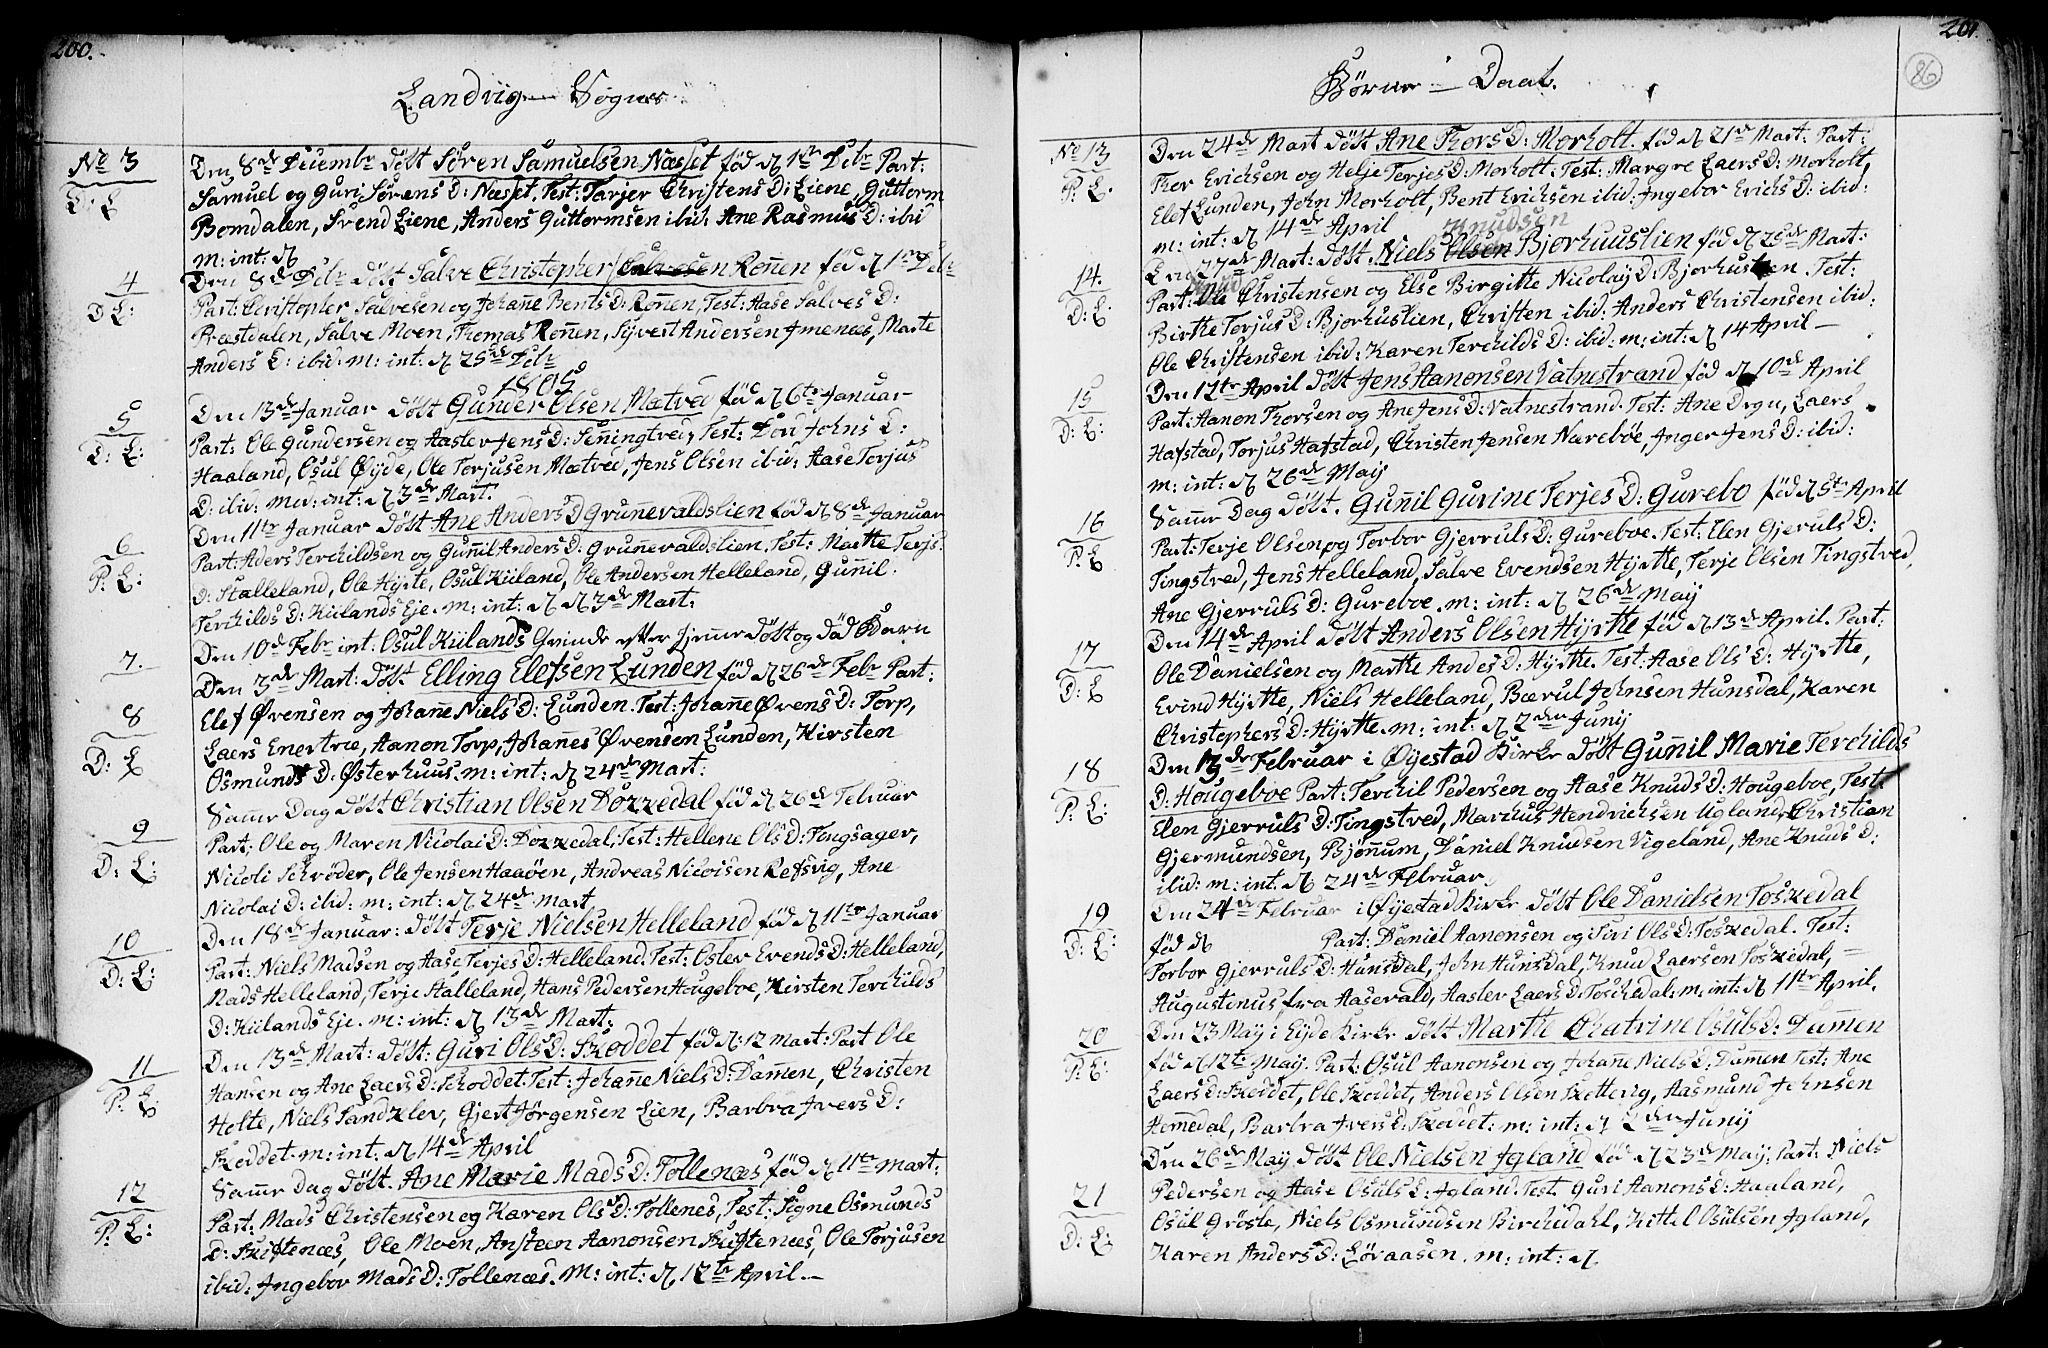 200.
Landvig Sogns
No 3
D: E
Den 8de Decembr döbt Sören Samuelsen Næsset föd d 1ste Debr Part:
Samuel og Guri Sørens D: Næsset. Test: Tarjer Christens D: Liene, Guttorm
Bomdalen, Svend Liene, Anders Guttormsen ibid: Ane Rasmus D: ibid
m: int: d
4
D E:
Den 8de Debr döbt Salve Christopher/Salvesen Roñen föd d 1ste Debr
Part: Christopher Salvesen og Johañe Bents D: Roñen, Test: Aase Salves D:
Præstdalen, Salve Moen, Thomas Roñen, Syvert Andersen Imenæs, Marte
Anders D: ibid: m: int: d 25de Debr
1805
5
D: E:
Den 13de Januar döbt Gunder Olsen Mætved föd d 6te Januar
Part: Ole Gundersen og Aaster Jens D: Señingtved, Test: Dorf Johns D:
Haaland, Osul Øyde, Ole Torjusen Mætved, Jens Olsen ibid: Aase Torjus
D: ibid: m: int: d 3de Mart:
6
P: E:
Den 11te Januar döbt Ane Anders D Gruñevaldslien föd d 8de Januar
Part: Aders Terchildsen og Guñil Anders D: Gruñevaldslien. Test: Marthe Terjs
D: Stalleland, Ole Hyrte, Osul Kiiland, Ole Andersen Helleland, Guñil
Terchilds D: Kiilands Eje. m: int: d d 3de Mart:
7.
Den 10d Febr int. Osul Kiilands Qvinde efter hjemme döbt og död Barn
8
D: E
Den 3de Mart: döbt Elling Elefsen Lunden föd d 26de Febr Part:
Elef Øvensen og Johañe Niels D: Lunden. Test: Johañe Øvens D: Torp,
Laers Enertræ, Aanon Torp, Johañes Øvensen Lunden, Kirsten
Osmunds D: Østerhuus. m: int: d 24de Mart:
9
D: E:
Same Dag döbt Christian Olsen Dozzedal föd d 26de Februar
Part: Ole og Maren Nicolai D: Dozzedal, Test: Hellene Ols D: Tongsager,
Nicoli Schrøder, Ole Jensen Haaöen, Andreas Nicoisen Refsvig, Ane
Nicolai D: ibid: m: int: d 24de Mart
10
D: E:
Den 18de Januar: döbt Terje Nielsen Helleland föd d 11te Januar
Part: Niels Madsen og Aase Terjes D: Helleland Test: Oslev Evends D: Helleland,
Mads Helleland, Terje Stalleland, Hans Pedersen Hougeboe, Kirsten Terchilds
D: Kiilands Eje. m: int: d 13de Mart:
11
P: E
Den 13de Mart: döbt: Guri Ols D: Skoddet föd d: 12 Mart: Part Ole
Hansen og Ane Laers D: Skoddet. Test: Johañe Niels D: Dam̄en, Christen
Holte, Niels Sandklev, Gjert Jörgensen Lien, Barbra Ivers D:
Skoddet m: int: d 14de April
12
P: E:
Same Dag döbt. Ane Marie Mads D: Tollenæs föd d 11te Mart:
Part: Mads Christensen og Karen Ols D: Tollenes, Test: Signe Osmunds
D: Skiftenæs, Ole Moen, Ansteen Aanonsen Skiftenæs, Ole Torjusen
ibid: Ingebor Mads D: Tollenæs. m: int: d 12te April.—
201
86
Börne - Daab.
No 13
P: E.
Den 24de Mart döbt Ane Thors D: Morholt. föd d 21de Mart: Part:
Thor Erichsen og Helje Terjes D: Morholt. Test: Margre Laers D: Morholt,
Elef Lunden, John Morholt, Bent Erichsen ibid: Ingebor Erichs D: ibid:
m: int: d 14de April
14.
D: E.
Knudsen
Den 27de Mart: döbt Niels Olsen Bjorhuuslien föd d 25de Mart:
Knud
Part: Ole Christensen og Else Birgitte Nicolaÿ D: Bjorhuslien. Test:
Birthe Torjus D: Bjorhuslien, Christen ibid: Anders Christensen ibid:
Ole Christensen ibid: Karen Terchilds D: ibid: m: int: d 14 April—
15
D: E:
Den 12te April döbt Jens Aanonsen Vatnestrand föd d 10de April
Part: Aanon Thorsen og Ane Jens D: Vatnestrand. Test: Ane Degn, Laers
Hafstad, Torjus Hafstad, Christen Jensen Narebøe, Inger Jens D: ibid:
m: int: d 26de Maÿ
16
P: E
Same Dag döbt. Guñil Gurine Terjes D: Gurebo föd d 5te April
Part: Terje Olsen og Torbor Gjerruls D: Gureboe. Test: Elen Gjeruls D:
Tingstved, Jens Helleland, Salve Evendsen Hÿrtte, Terje Olsen Tingstved,
Ane Gjerruls D: Gureboe. m: int: d 26de Maÿ
17
D: E
Den 14de April döbt Anders Olsen Hÿrtte föd d 13de April. Part:
Ole Danielsen og Marthe Andes D: Hÿrtte. Test: Aase Ols D: Hÿrtte,
Evind Hÿrtte, Niels Helleland, Bærul Johnsen Hunsdal, Karen
Christophers D: Hÿrtte. m: int: d 2den Junÿ
18
P: E:
Den 13de Februar i Øÿestad Kirke döbt Guñil Marie Terchilds
D: Hougeboe Part: Terchil Pedersen og Aase Knuds D: Hougeboe, Test:
Elen Gjerruls D: Tingstved, Marchus Hendrichsen Ugland, Christian
Gjermundsen, Bjöñum, Daniel Knudsen Vigeland, Ane Knuds D:
ibid: m: int: d: 24de Februar
19
D: E:
Den 24de Februar i Øÿestad Kirke döbt Ole Danielsen Toskedal
föd d Part: Daniel Aanonsen og Siri Ols D: Toskedal. Test:
Torbor Gjerruls D: Hunsdal, John Hunsdal, Knud Laersen Toskedal, —
Augustinus fra Aasevald, Aaster Laers D: Toschedal: m: int: d 11te April.
20
P: E:
Den 23 Maÿ i Eide Kirke döbt Marthe Chatrine Osuls D: Dam̄en
föd d 12te Maÿ. Part: Osul Aanonsen og Johañe Niels D: Dam̄en Test: Ane
Laers D: Skoddet, Ole Skoddet, Anders Olsen Skottevig, Aasmund Johnsen
Hom̄edal, Barbra Ivers D: Skoddet: m: int: d 2den Junÿ
21
D: E:
Den 26de Maÿ döbt Ole Nielsen Igland föd d 23de Maÿ: Part: Niels
Pedersen og Aase Osuls D: Igland. Test Guri Aanons D: Haaland,
Osul Gröste, Niels Osmundsen Birchedahl, Kittel Osulsen Igland,
Karen Anders D: Løvaasen. m: int: d